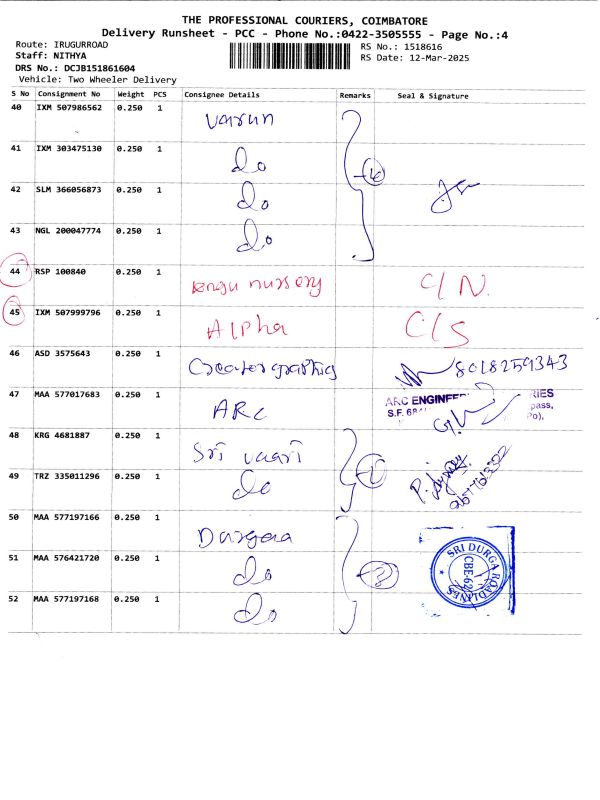 THE PROFESSIONAL COURIERS, COIMBATORE
Delivery Runsheet - PCC - Phone No.:0422-3505555 - Page No.:4
Route: IRUGURROAD
RS No.: 1518616
Staff: NITHYA
RS Date: 12-Mar-2025
DRS No.: DCJB151861604
Vehicle: Two Wheeler Delivery
S No Consignment No Weight PCS Consignee Details Remarks Seal & Signature
40 IXM 507986562 0.250 1 Varun
41 IXM 303475130 0.250 1 do
42 SLM 366056873 0.250 1 do
43 NGL 200047774 0.250 1 do
44 RSP 100840 0.250 1 nursery C/N.
45 IXM 507999796 0.250 1 Alpha C/S
46 ASD 3575643 0.250 1 Creater graphics 8018259343
47 MAA 577017683 0.250 1 ARC
ARC ENGINEER RIES
S.F. pass,
Po),
48 KRG 4681887 0.250 1 Sri vaari
49 TRZ 335011296 0.250 1 do
50 MAA 577197166 0.250 1 Durgaa
51 MAA 576421720 0.250 1 do
SRI DURGA ROADLINES
CBE-62
52 MAA 577197168 0.250 1 do